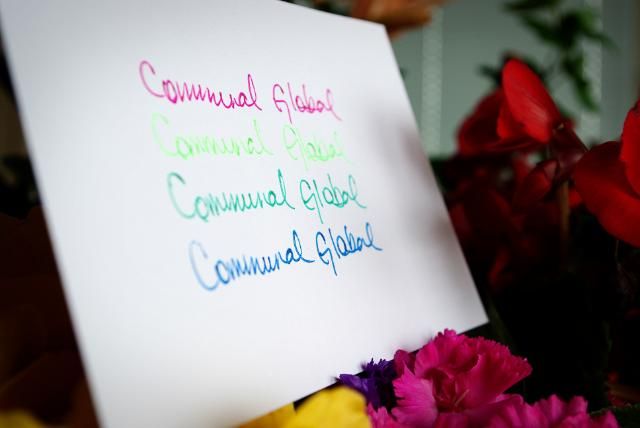 Communal Global
Communal Global
Communal Global
Communal Global